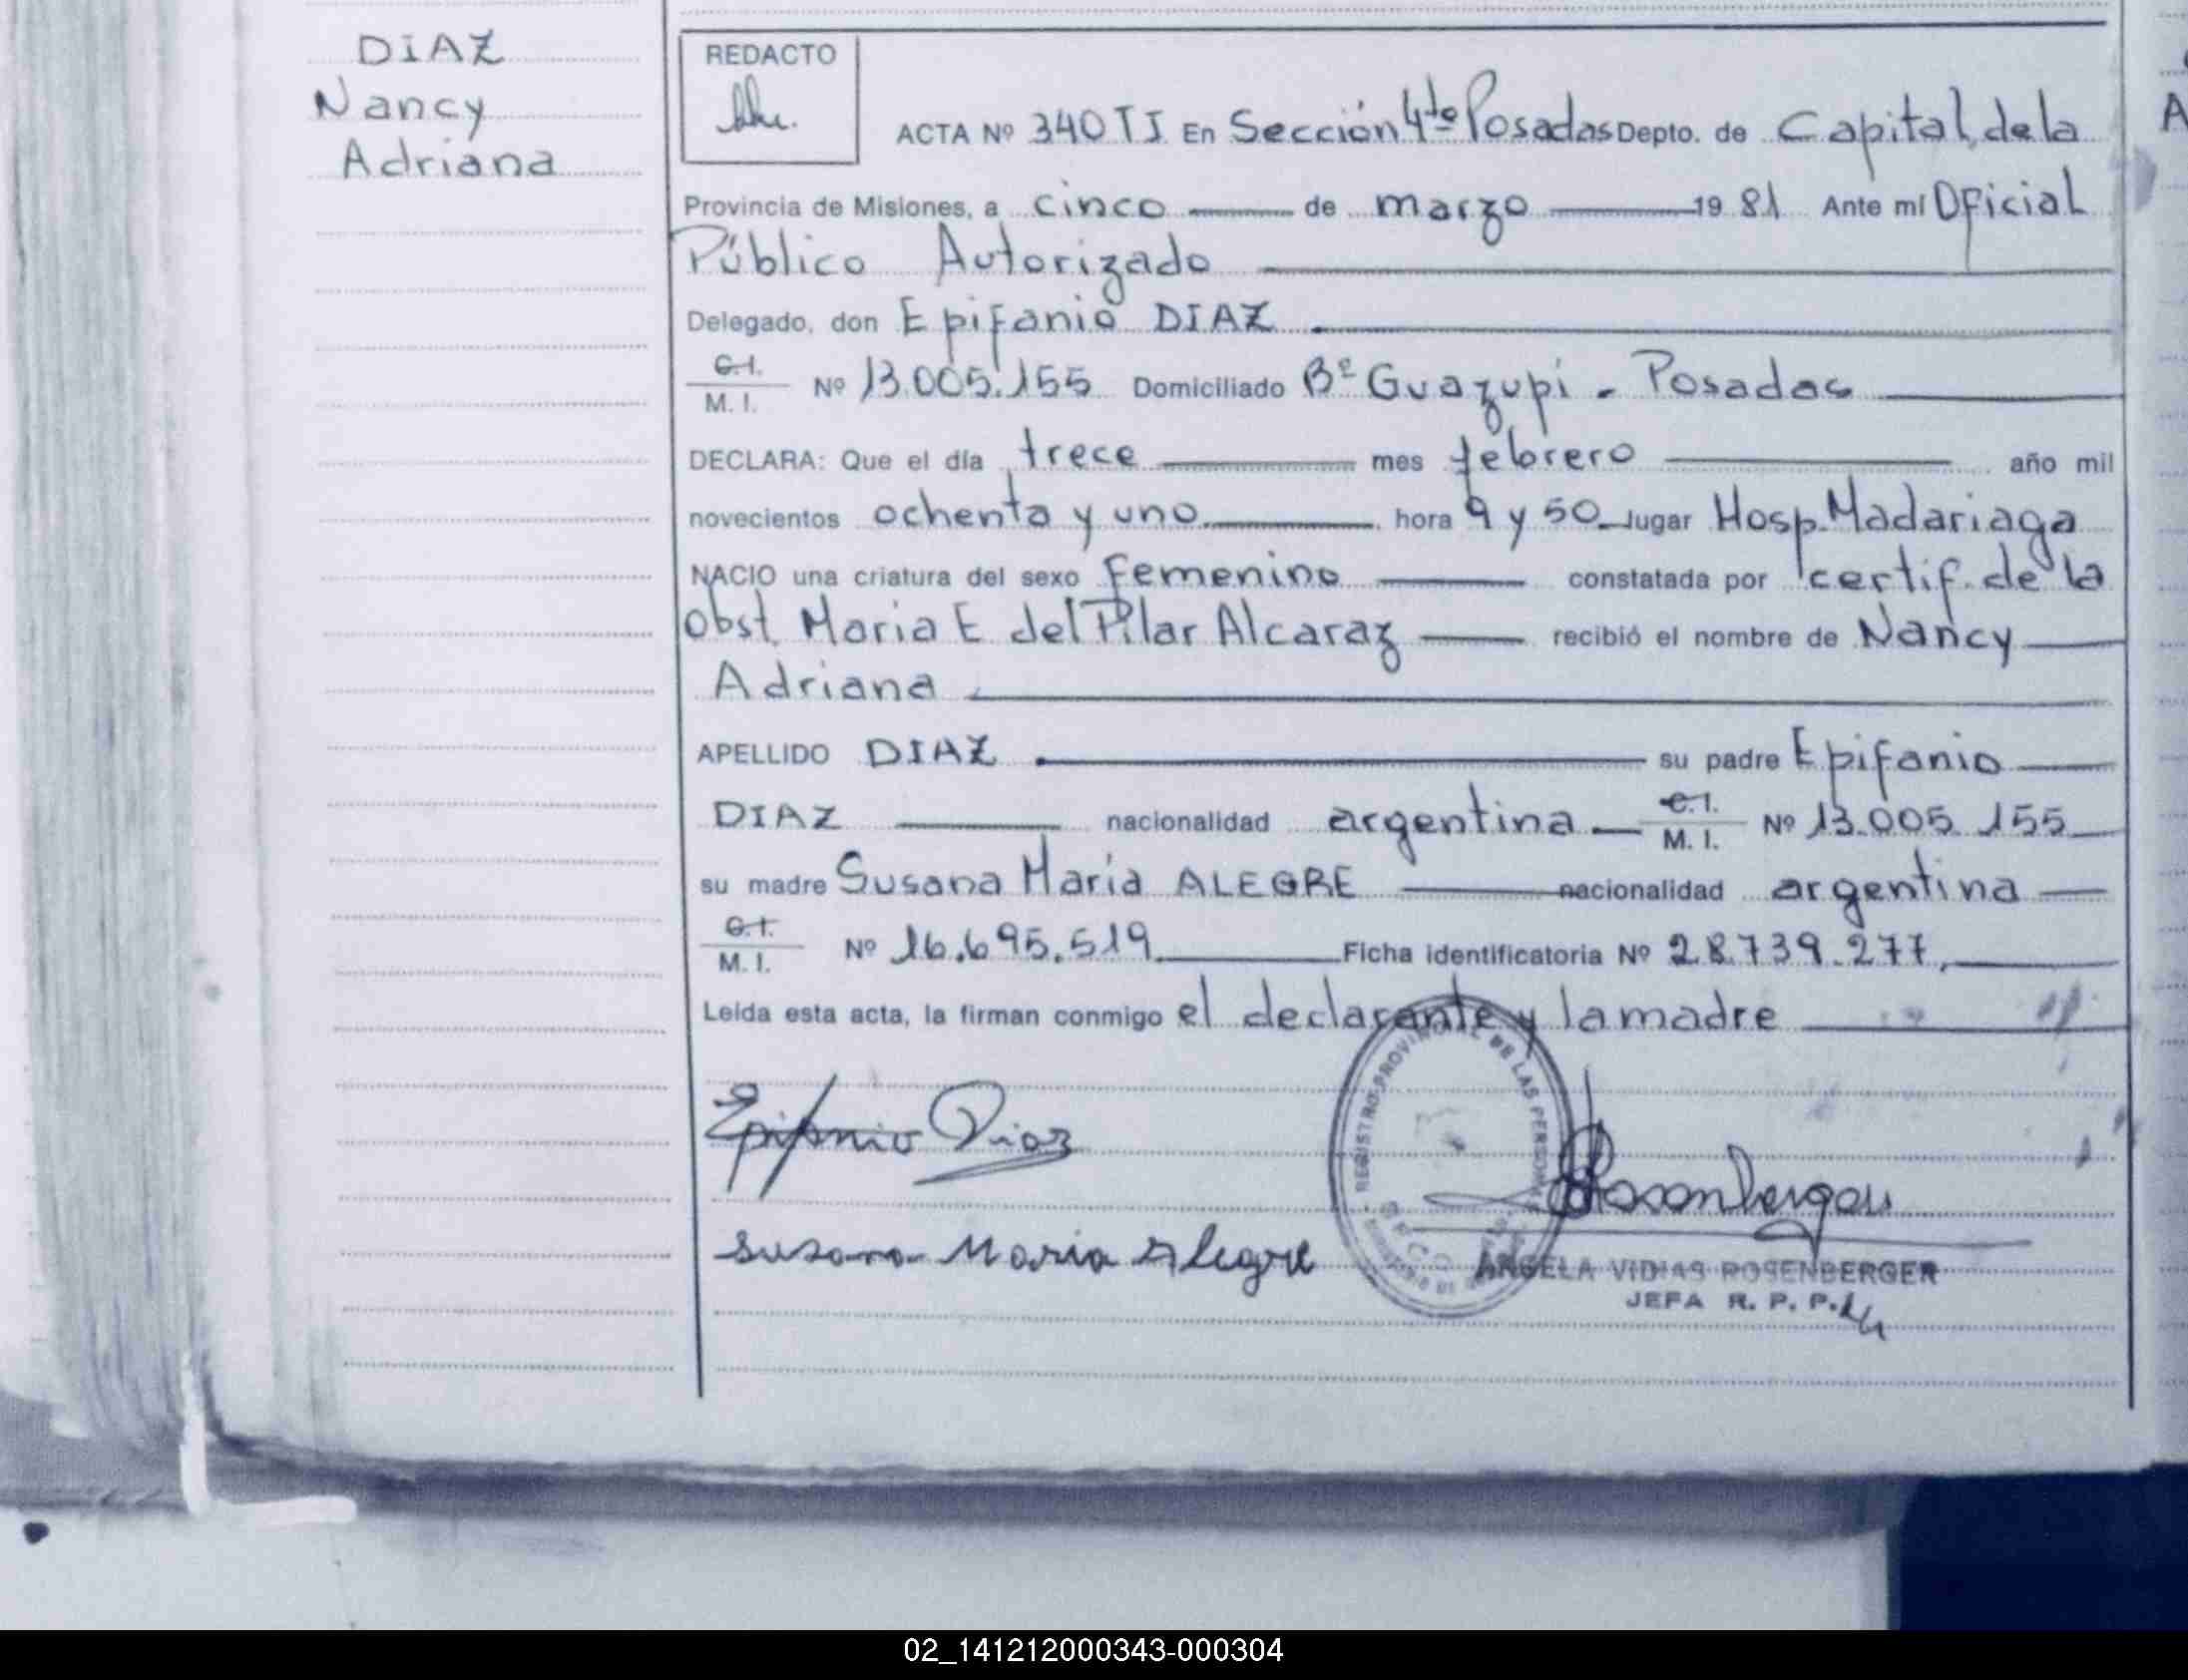 DIAZ
Nancy
Adriana
REDACTO
ACTA Nº 340 TI En Sección 4ta Posadas Depto. de Capital, de la
Provincia de Misiones, a cinco de marzo 19 81 Ante mí Oficial
Público Autorizado
Delegado, don Epifanio DIAZ
C.I. M. I. Nº 13.005.155 Domiciliado Bº Guazupi - Posadas
DECLARA: Que el día trece mes febrero año mil
novecientos ochenta y uno hora 9 y 50 lugar Hosp. Madariaga
NACIO una criatura del sexo femenino constatada por certif. de la
obst. Maria E del Pilar Alcaraz recibió el nombre de Nancy
Adriana
APELLIDO DIAZ su padre Epifanio
DIAZ nacionalidad argentina C.I. M. I. Nº 13.005.155
su madre Susana Maria ALEGRE nacionalidad argentina
C.I. M. I. Nº 16.695.519 Ficha identificatoria Nº 28.739.277,
Leída esta acta, la firman conmigo el declarante y la madre
REGISTRO PROVINCIAL DE LAS PERSONAS
Epifanio Diaz
Rosenberger
Susana Maria Alegre
ANGELA VIDIAS ROSENBERGER
JEFA R. P. P.
02_141212000343-000304